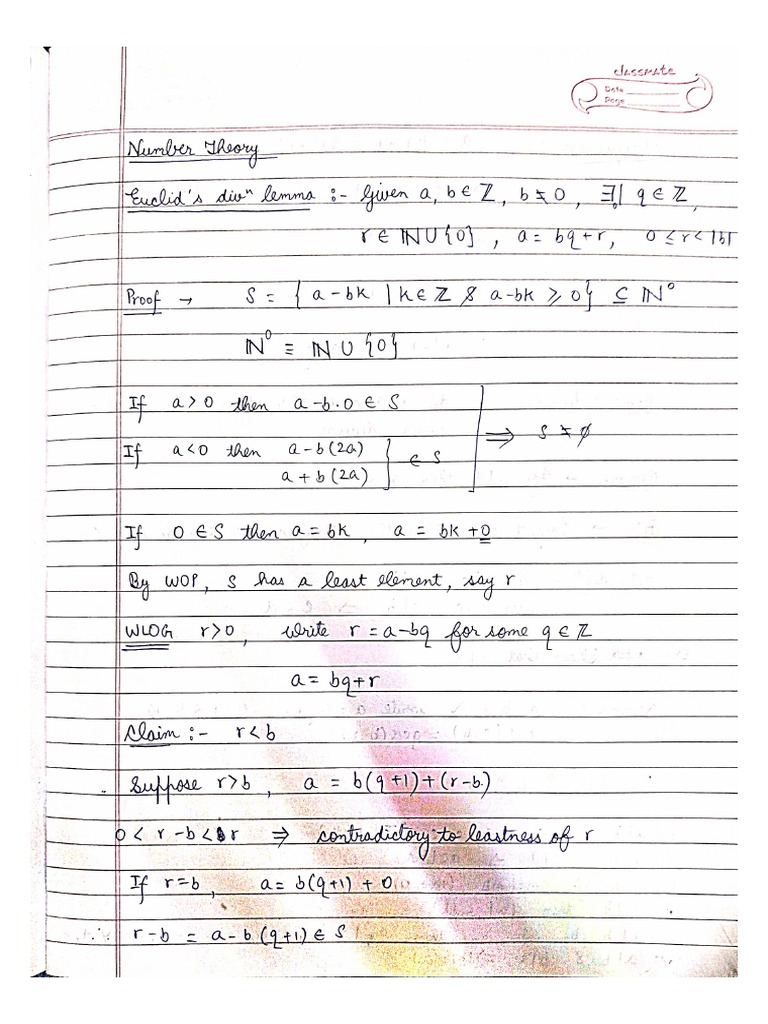 classmate
Date
Page
Number Theory
Euclid's divⁿ lemma :- Given a, b ∈ ℤ, b ≠ 0, ∃!| q ∈ ℤ,
r ∈ ℕ∪{0}, a = bq+r, 0 ≤ r < |b|
Proof → S = { a-bk | k ∈ ℤ & a-bk ⩾ 0} ⊆ ℕ⁰
ℕ⁰ ≡ ℕ ∪ {0}
If a > 0 then a-b·0 ∈ S
If a < 0 then a-b(2a) } ∈ S ] ⟹ S ≠ ∅
a+b(2a)
If 0 ∈ S then a = bk, a = bk + 0
By WOP, S has a least element, say r
WLOG r>0, write r = a-bq for some q ∈ ℤ
a = bq+r
Claim :- r < b
Suppose r>b, a = b(q+1)+(r-b)
0 < r-b < r ⇒ contradictory to leastness of r
If r=b, a = b(q+1) + 0
r-b = a-b(q+1) ∈ S